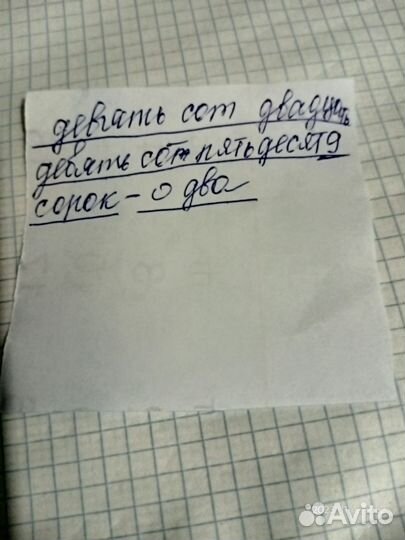 девять сот двадцать
девять сот пятьдесят 9
сорок - о два
Avito